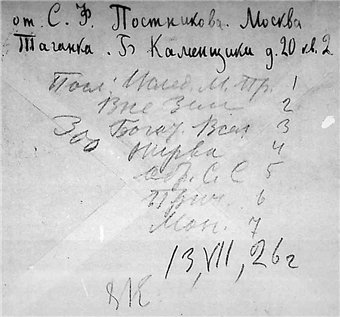 от. С. Ф. Постникова. Москва
Таганка. Б Каменщики д. 20 кв. 2.
Посл: М. Пр. 1
Вне Зем 2
Зоо Богат. Всел 3
Жертва 4
С. С 5
Прич. 6
Мон. 7
13, VII, 26 г